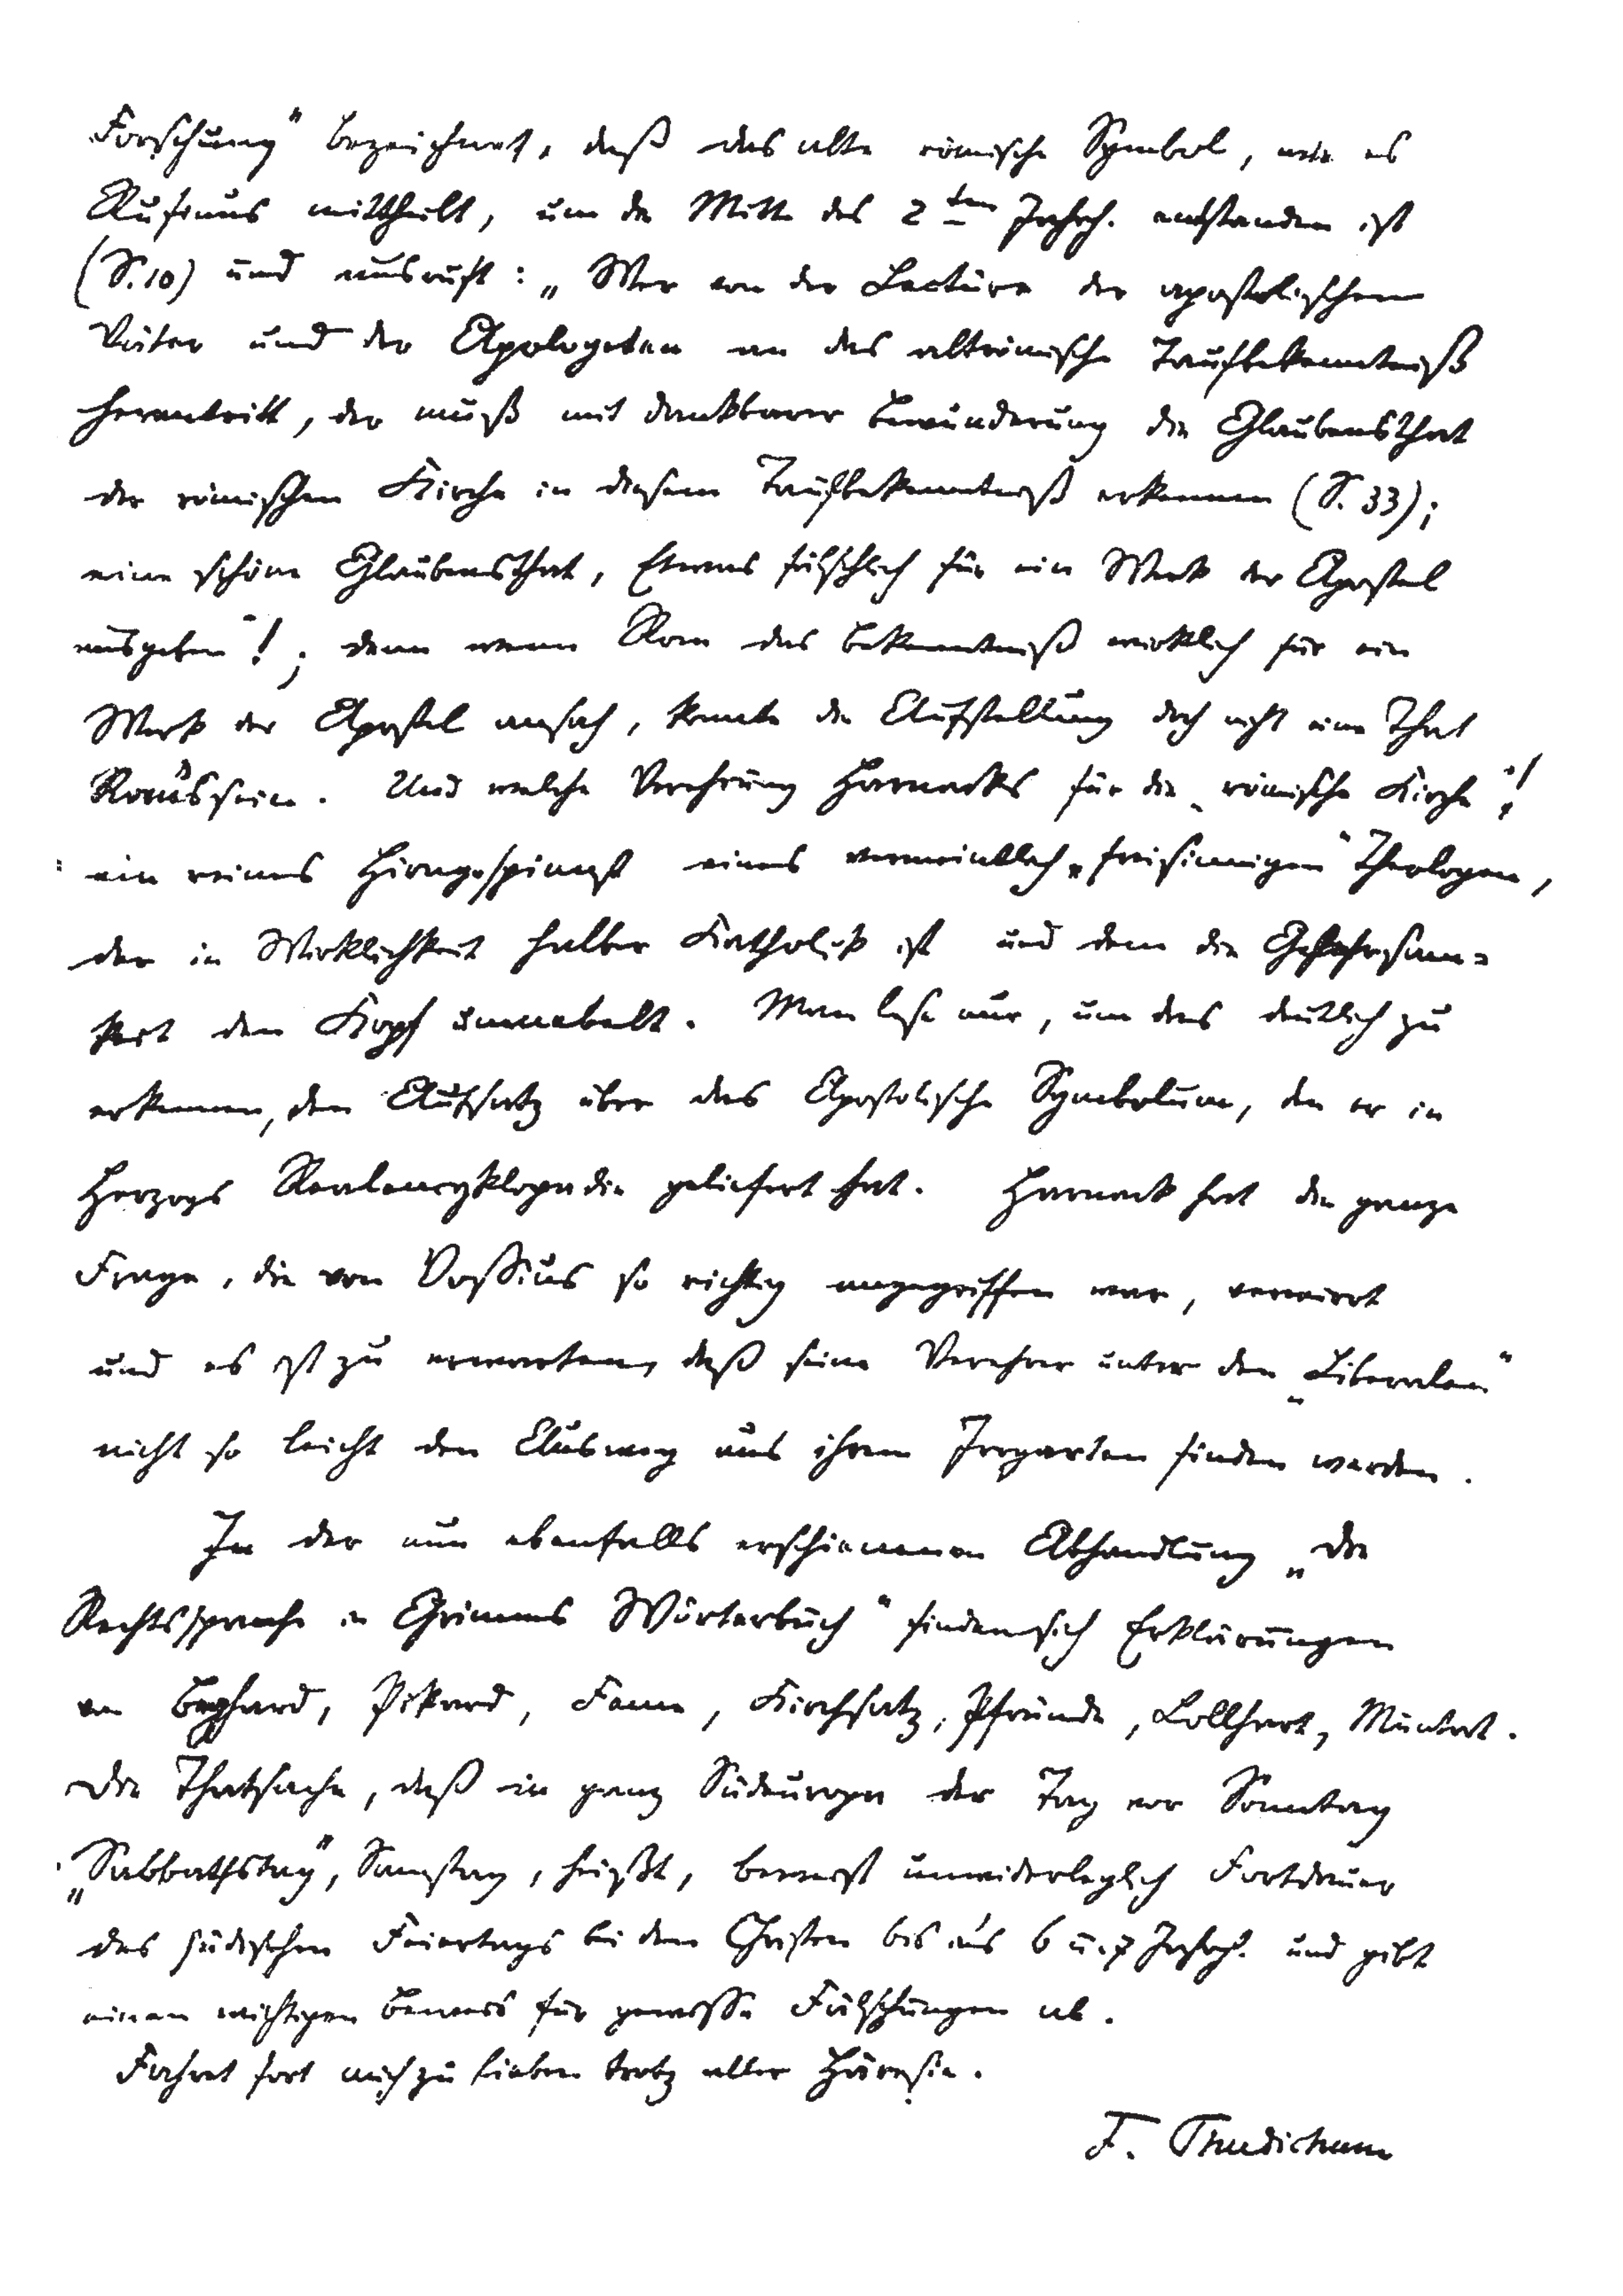 Forschung" bezeichnet, daß das alte römische Symbol, wie es
Rufinus mittheilt, um die Mitte des 2ten Jahrh. entstanden ist
(S. 10) und ausruft: „Wer von der Lectüre der apostolischen
Väter und der Apologeten an das altrömische Taufbekenntniß
herantritt, der muß mit dankbarer Bewunderung die Glaubensthat
der römischen Kirche in diesem Taufbekenntniß erkennen (S. 33);
eine schöne Glaubensthat, Etwas fälschlich für ein Werk der Apostel
ausgeben"!; denn wenn Rom das Bekenntniß wirklich für ein
Werk der Apostel ansah, konnte die Aufstellung doch nicht eine That
Roms sein. Und welche Verehrung Harnacks für die „römische Kirche"!
ein reines Hirngespinnst eines vermeintlich „freisinnigen" Theologen,
der in Wirklichkeit halber Katholik ist und dem die Gelehrsam=
keit den Kopf umnebelt. Man lese nur, um das deutlich zu
erkennen, den Aufsatz über das Apostolische Symbolum, den er in
Herzogs Realencyklopädie geliefert hat. Harnack hat die ganze
Frage, die von Vossius so richtig angegriffen war, verwirrt
und es ist zu erwarten, daß seine Verehrer unter den „Liberalen"
nicht so leicht den Ausweg aus ihrem Irrgarten finden werden.
In der nun ebenfalls erschienenen Abhandlung „Die
Rechtssprache in Grimms Wörterbuch" finden sich Erklärungen
von Beghard, Pikard, Feme, Kirchsatz, Pfründe, Lollhart, Muntat.
Die Thatsache, daß in ganz Südeuropa der Tag vor Sonntag
„Sabbathstag", Samstag, heißt, beweist unwiderleglich Fortdauer
des jüdischen Feiertags bei den Christen bis ins 6 u. 7 Jahrh. und gibt
einen wichtigen Beweis für gewisse Fälschungen ab.
Fahret fort mich zu lieben trotz aller Häresie.
F. Thudichum